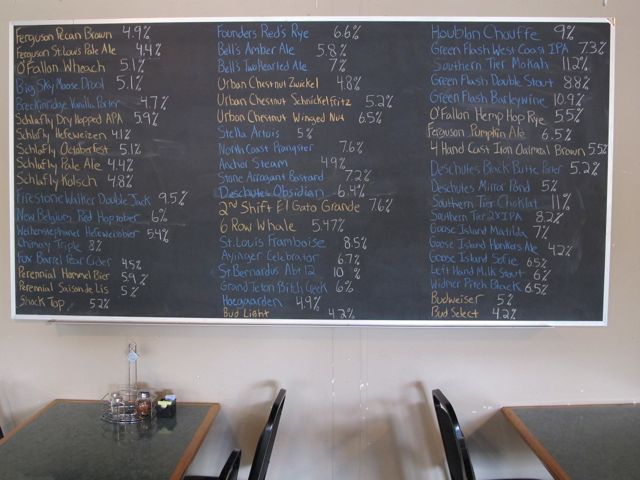 Ferguson Pecan Brown 4.9%
Ferguson St. Louis Pale Ale 4.4%
O'Fallon Wheach 5.1%
Big Sky Moose Drool 5.1%
Breckinridge Vanilla Porter 4.7%
Schlafly Dry Hopped APA 5.9%
Schlafly Hefeweizen 4.1%
Schlafly Octoberfest 5.1%
Schlafly Pale Ale 4.4%
Schlafly Kolsch 4.8%
Firestone Walker Double Jack 9.5%
New Belgium Red Hoptober 6%
Weihenstephaner Hefeweissbier 5.4%
Chimay Triple 8%
Fox Barrel Pear Cider 4.5%
Perennial Hommel Bier 5.9%
Perennial Saison de Lis 5%
Shock Top 5.2%
Founders Red's Rye 6.6%
Bell's Amber Ale 5.8%
Bell's Two Hearted Ale 7%
Urban Chestnut Zwickel 4.8%
Urban Chestnut Schnickelfritz 5.2%
Urban Chestnut Winged Nut 6.5%
Stella Artois 5%
North Coast Prangster 7.6%
Anchor Steam 4.9%
Stone Arrogant Bastard 7.2%
Deschutes Obsidian 6.4%
2nd Shift El Gato Grande 7.6%
6 Row Whale 5.47%
St. Louis Framboise 8.5%
Ayinger Celebrator 6.7%
St. Bernardus Abt 12 10%
Grand Teton Bitch Creek 6%
Hoegaarden 4.9%
Bud Light 4.2%
Houblon Chouffe 9%
Green Flash West Coast IPA 7.3%
Southern Tier Mokah 11.2%
Green Flash Double Stout 8.8%
Green Flash Barleywine 10.9%
O'Fallon Hemp Hop Rye 5.5%
Ferguson Pumpkin Ale 6.5%
4 Hand Cast Iron Oatmeal Brown 5.5%
Deschutes Black Butte Porter 5.2%
Deschutes Mirror Pond 5%
Southern Tier Choklat 11%
Southern Tier 2XIPA 8.2%
Goose Island Matilda 7%
Goose Island Honkers Ale 4.2%
Goose Island Sofie 6.5%
Left Hand Milk Stout 6%
Widmer Pitch Black 6.5%
Budweiser 5%
Bud Select 4.2%